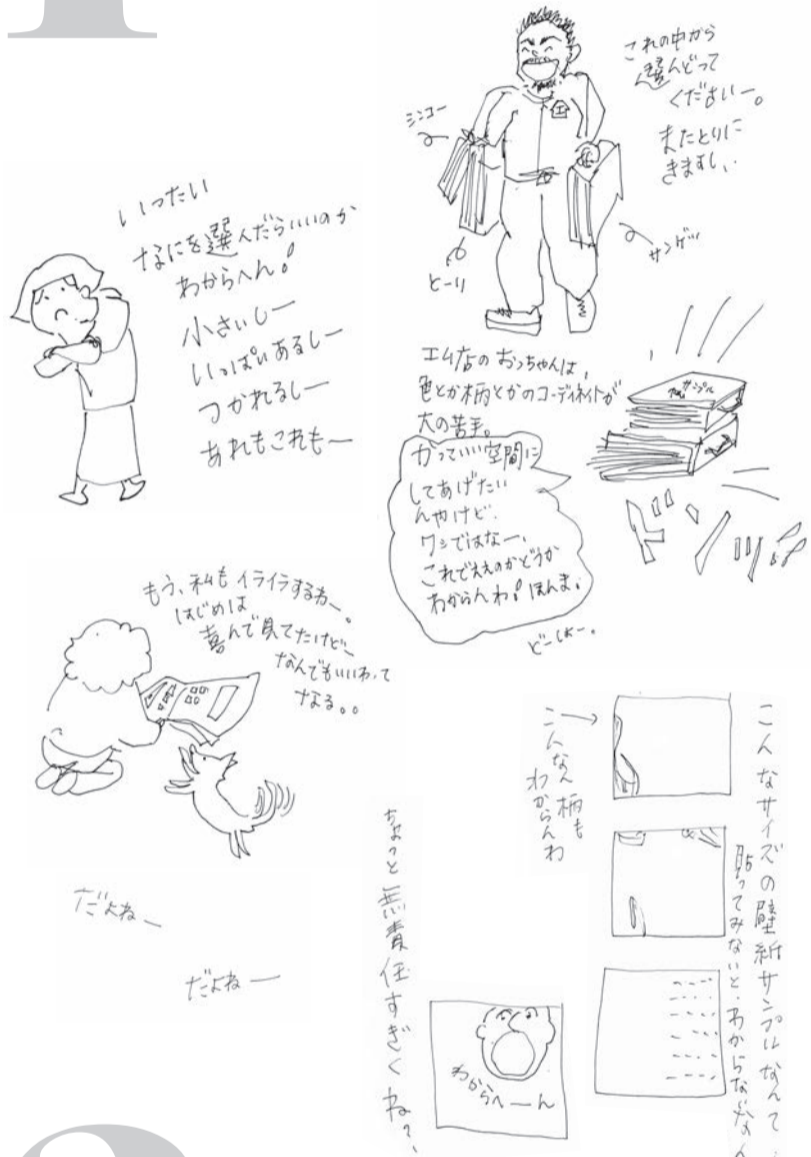 これの中から
選んどって
くださいー。
またとりに
きますし、
シンコー
とーり
サンゲツ
いったい
なにを選んだらいいのか
わからへん!
小さいしー
いっぱいあるしー
つかれるしー
あれもこれもー
工ム店の おっちゃんは、
色とか柄とかのコーディネイトが
大の苦手。
かっていい空間に
してあげたい
んやけど、
ワシではなー、
これでええのかどうか
わからんわ! ほんま。
どーしよー。
サンプル
ドンッ
もう、私もイライラするわー。
はじめは
喜んで見てたけど、
なんでもいいわって
なる。。
だよねー
だよねー
こんなサイズの壁紙サンプルなんて
貼ってみないと、わからな
こんなん柄も
わからんわ
ちょっと無責任すぎくね?
わからへーん